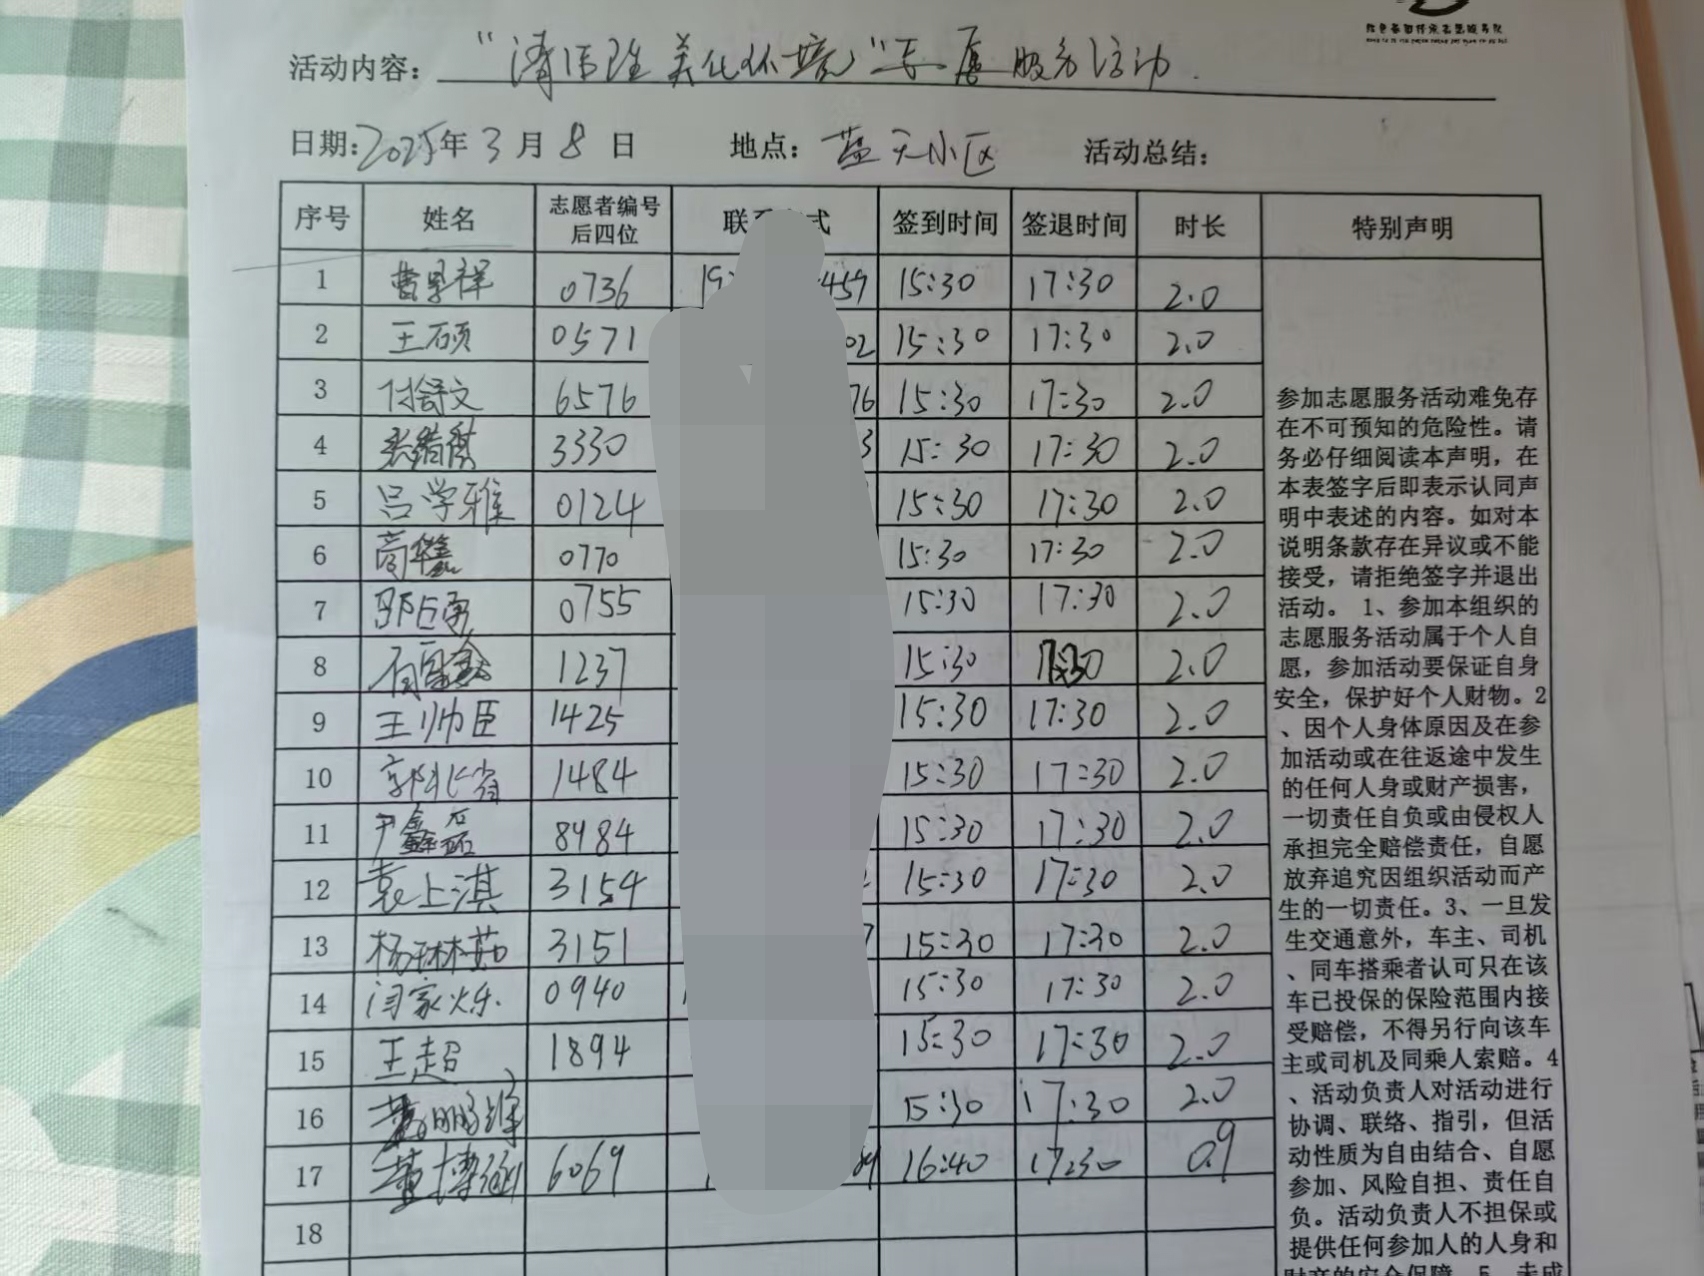 红色基因传承志愿服务队
活动内容: "清洁理美化环境"志愿服务活动.
日期:2025年3月8日 地点: 蓝天小区 活动总结:
序号 姓名 志愿者编号后四位 联 式 签到时间 签退时间 时长 特别声明
1 曹 祥 0736 19 459 15:30 17:30 2.0
2 王硕 0571 02 15:30 17:30 2.0
3 付舒文 6576 76 15:30 17:30 2.0
4 3330 3 15:30 17:30 2.0
5 吕学雅 0124 15:30 17:30 2.0
6 高 鑫 0770 15:30 17:30 2.0
7 0755 15:30 17:30 2.0
8 1237 15:30 17:30 2.0
9 王帅臣 1425 15:30 17:30 2.0
10 郭 1484 15:30 17:30 2.0
11 尹鑫磊 8984 15:30 17:30 2.0
12 袁上淇 3154 15:30 17:30 2.0
13 杨琳茹 3151 7 15:30 17:30 2.0
14 闫家烁 0940 15:30 17:30 2.0
15 王超 1894 15:30 17:30 2.0
16 鹏 15:30 17:30 2.0
17 董博涵 6069 16:40 17:30 0.9
18
参加志愿服务活动难免存
在不可预知的危险性。请
务必仔细阅读本声明，在
本表签字后即表示认同声
明中表述的内容。如对本
说明条款存在异议或不能
接受，请拒绝签字并退出
活动。1、参加本组织的
志愿服务活动属于个人自
愿，参加活动要保证自身
安全，保护好个人财物。2
、因个人身体原因及在参
加活动或在往返途中发生
的任何人身或财产损害，
一切责任自负或由侵权人
承担完全赔偿责任，自愿
放弃追究因组织活动而产
生的一切责任。3、一旦发
生交通意外，车主、司机
、同车搭乘者认可只在该
车已投保的保险范围内接
受赔偿，不得另行向该车
主或司机及同乘人索赔。4
、活动负责人对活动进行
协调、联络、指引，但活
动性质为自由结合、自愿
参加、风险自担、责任自
负。活动负责人不担保或
提供任何参加人的人身和
财产的安全保障。5、未成